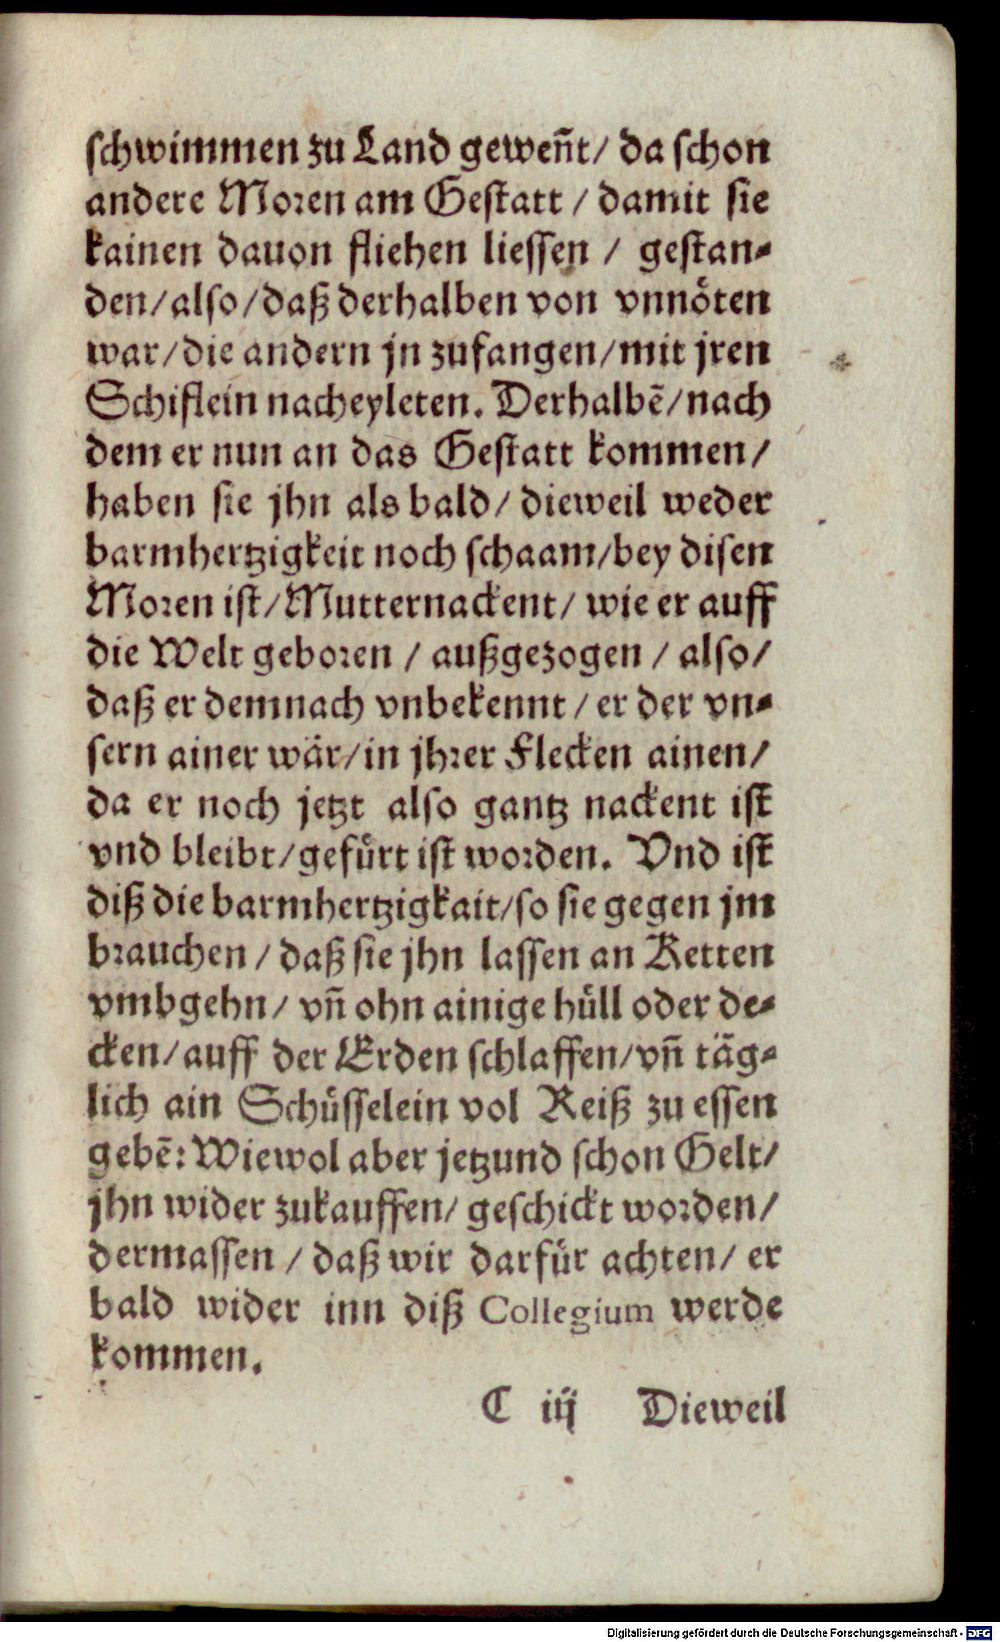 schwimmen zu Land geweñt/ da schon
andere Moren am Gestatt / damit sie
kainen dauon fliehen liessen / gestan-
den/also/daß derhalben von vnnöten
war/die andern jn zufangen/mit jren
Schiflein nacheyleten. Derhalbẽ/nach
dem er nun an das Gestatt kommen/
haben sie jhn als bald/ dieweil weder
barmhertzigkeit noch schaam/bey disen
Moren ist/Mutternackent/ wie er auff
die Welt geboren / außgezogen / also/
daß er demnach vnbekennt / er der vn-
sern ainer wär/in jhrer Flecken ainen/
da er noch jetzt also gantz nackent ist
vnd bleibt/gefürt ist worden. Vnd ist
diß die barmhertzigkait/so sie gegen jm
brauchen / daß sie jhn lassen an Ketten
vmbgehn/ vñ ohn ainige hüll oder de-
cken/auff der Erden schlaffen/vñ täg-
lich ain Schüsselein vol Reiß zu essen
gebẽ: Wiewol aber jetzund schon Gelt/
jhn wider zukauffen/ geschickt worden/
dermassen / daß wir darfür achten/ er
bald wider inn diß Collegium werde
kommen.
C iij Dieweil
Digitalisierung gefördert durch die Deutsche Forschungsgemeinschaft - DFG